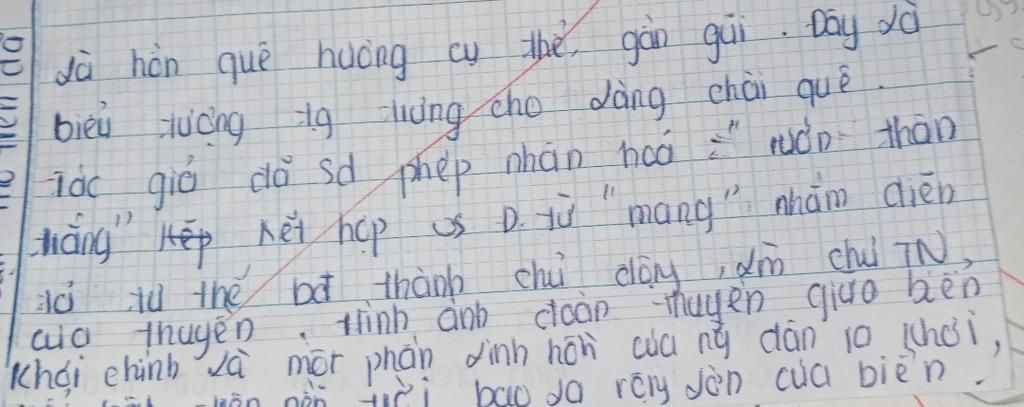 là hồn quê hương cụ thể, gần gũi. Đây là
biểu tượng tg trưng cho làng chài quê.
Tác giả đã sd phép nhân hoá = "rướn thân
trắng" kết hợp vs D. từ "mang" nhằm diễn
tả tư thế bđ thành chủ động, làm chủ TN,
của thuyền. Hình ảnh đoàn thuyền giữa biển
khơi chính là một phần linh hồn của ng dân ra khơi,
bao la rộng lớn của biển.